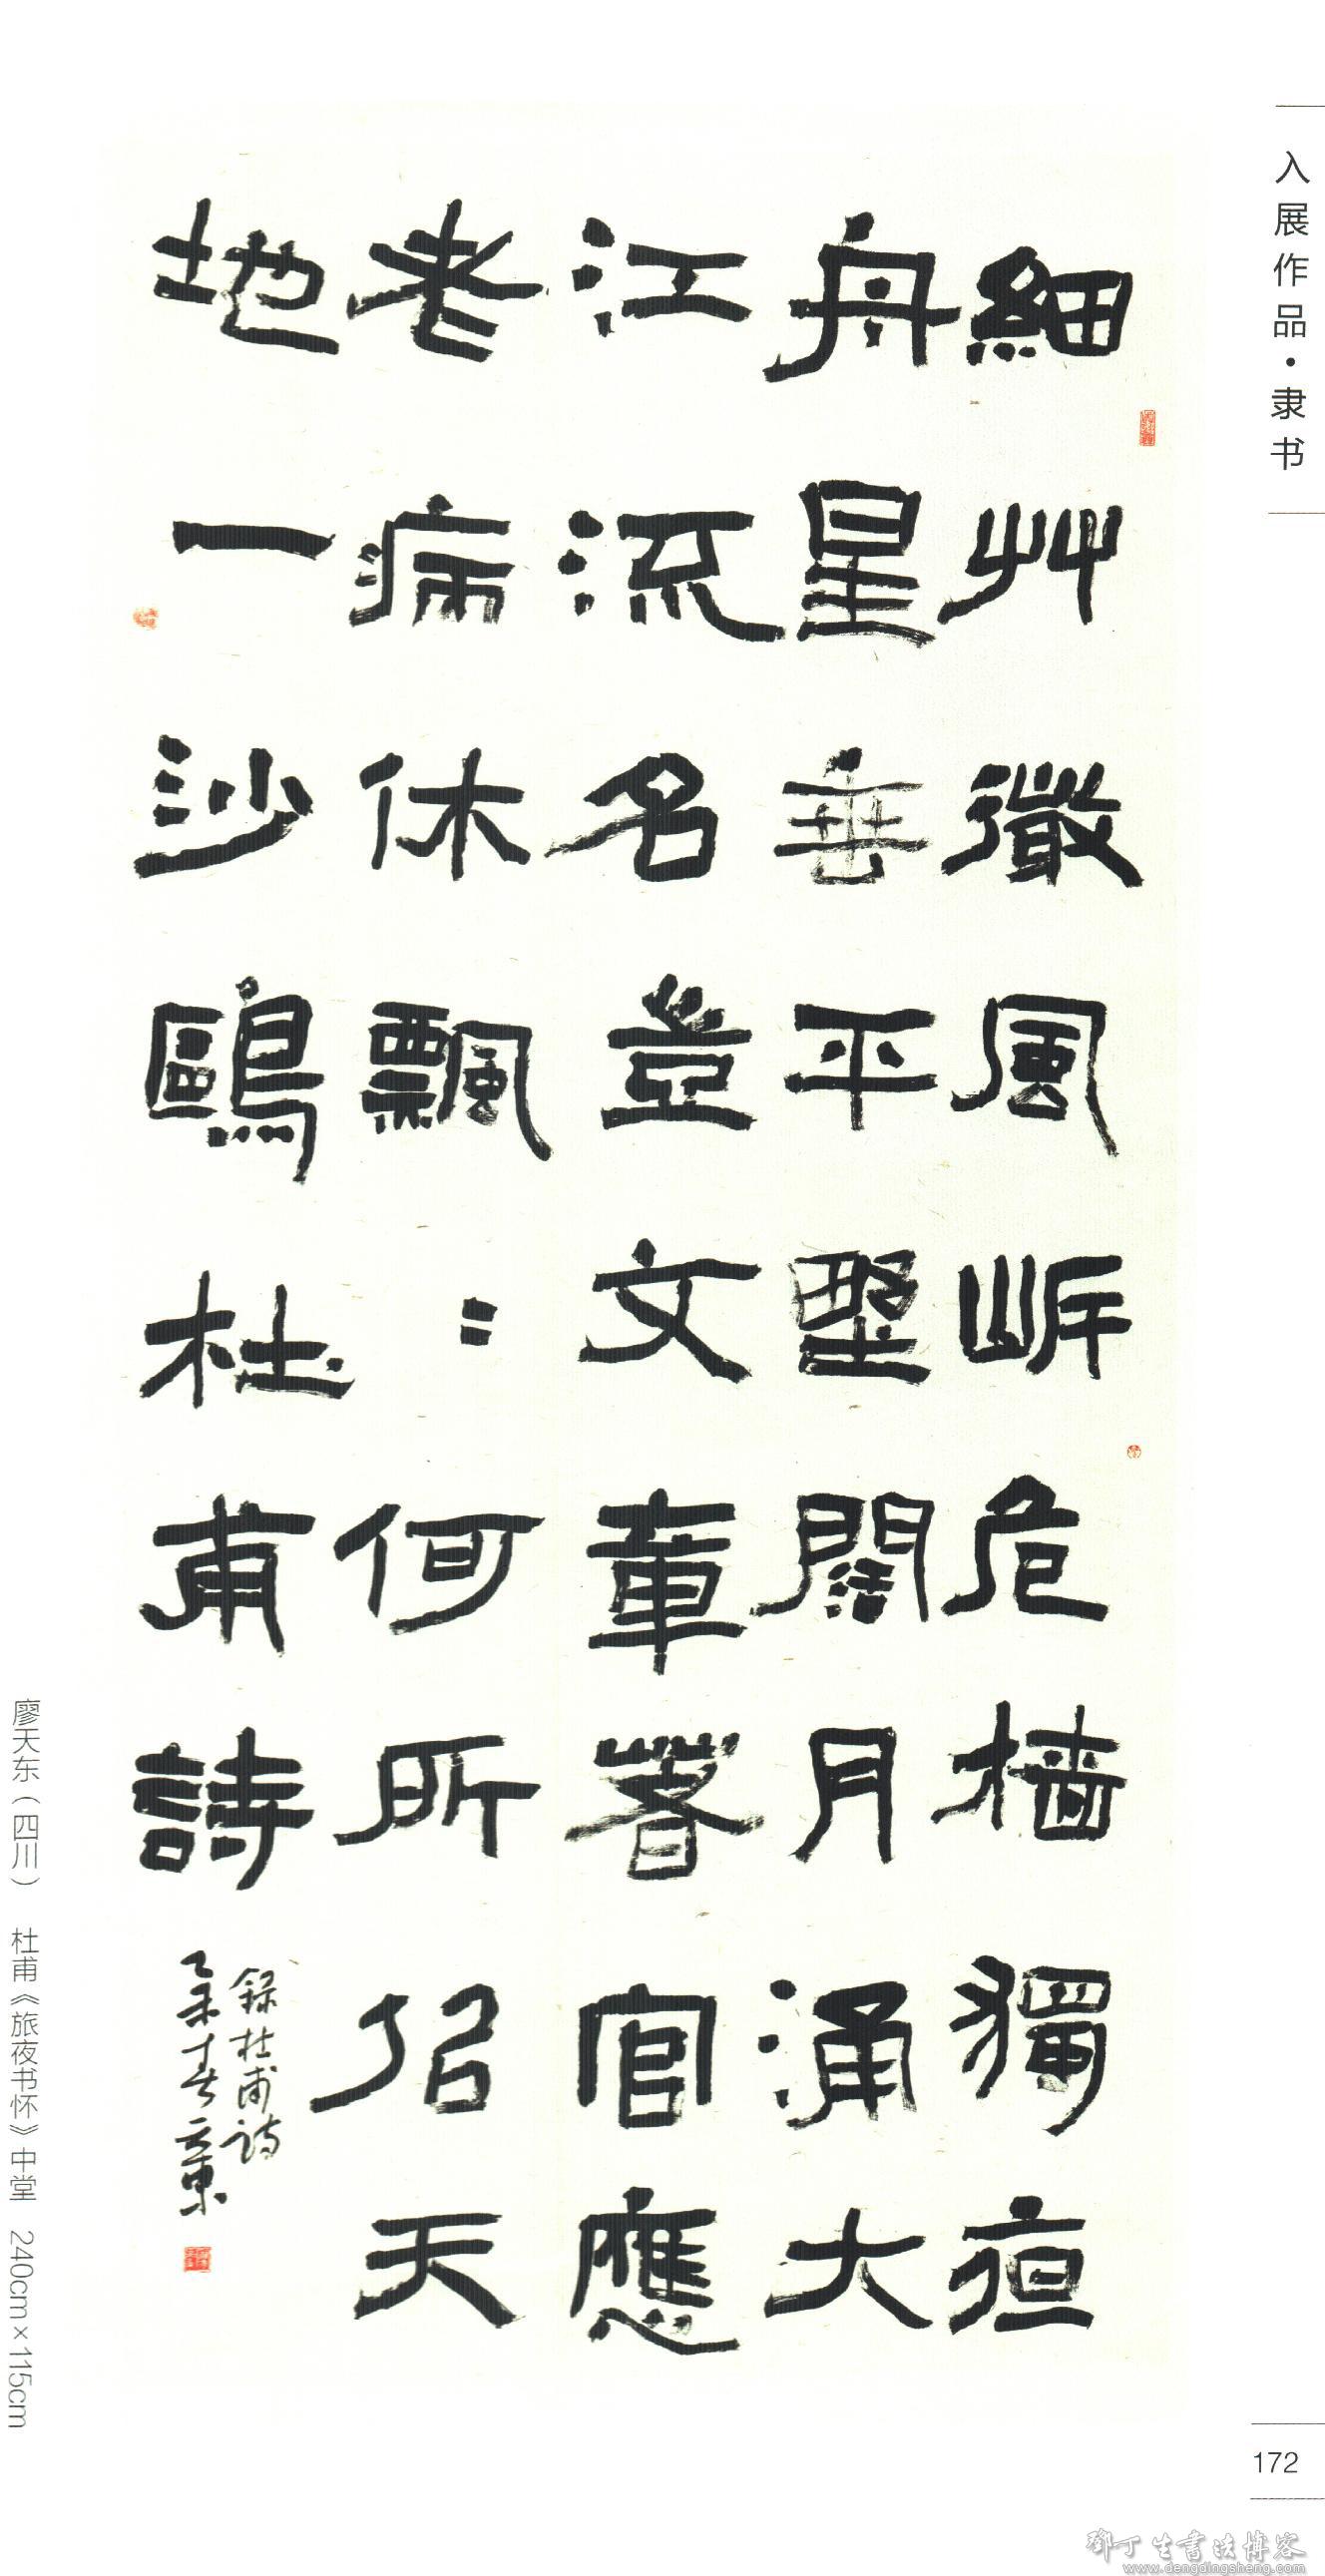 入展作品·隶书
細艸微風岸危檣獨亱
舟星垂平野闊月涌大
江流名豈文章著官應
老病休飄〻何所佀天
地一沙鷗杜甫詩
録杜甫詩
乙未春天東
廖天东（四川） 杜甫《旅夜书怀》中堂 240cm×115cm
172
鄧丁生書法博客
www.dengdingsheng.com